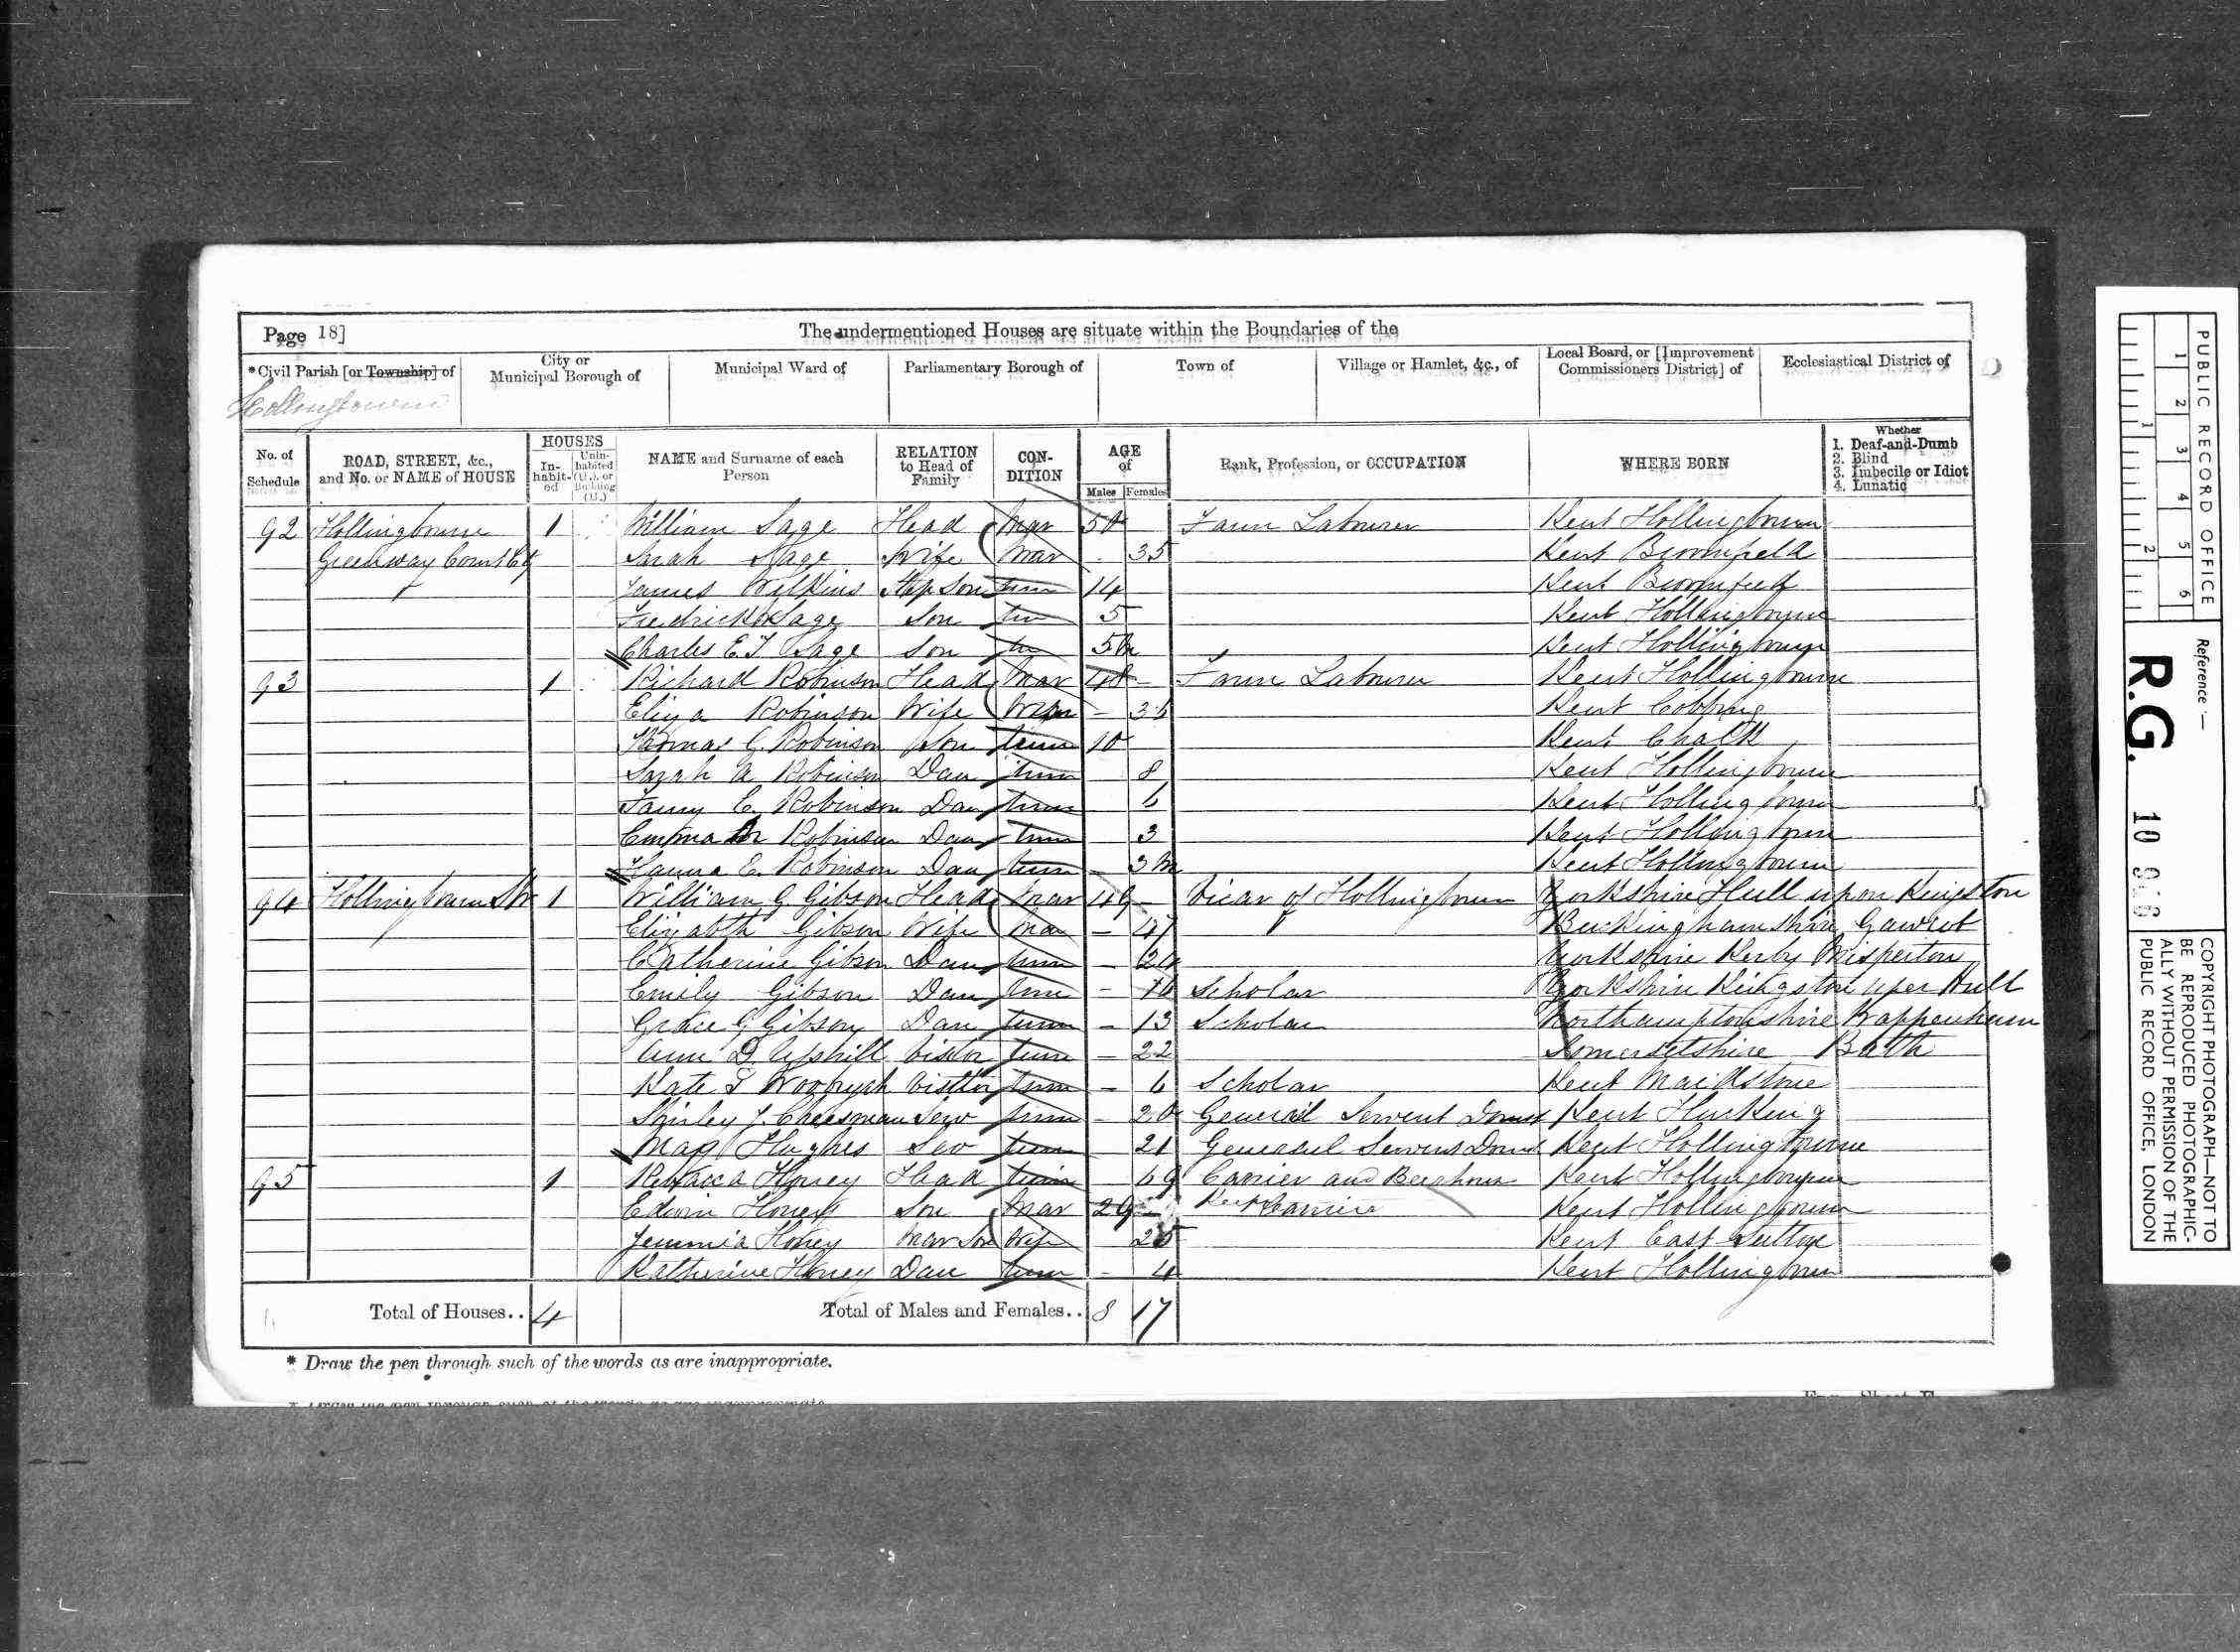 Page 18] The undermentioned Houses are situate within the Boundaries of the
*Civil Parish [or Township] of City or Municipal Borough of Municipal Ward of Parliamentary Borough of Town of Village or Hamlet, &c., of Local Board, or [Improvement Commissioners District] of Ecclesiastical District of
Hollingbourne
No. of Schedule ROAD, STREET, &c., and No. or NAME of HOUSE HOUSES In-habit-ed Unin-habited (U.), or Building (B.) NAME and Surname of each Person RELATION to Head of Family CON-DITION AGE of Males Females Rank, Profession, or OCCUPATION WHERE BORN Whether 1. Deaf-and-Dumb 2. Blind 3. Imbecile or Idiot 4. Lunatic
92 Hollingbourne 1 William Sage Head Mar 50 Farm Labourer Kent Hollingbourn
Greenway Court Sarah Sage Wife Mar 35 Kent Broomfield
James Wilkins Step Son Unm 14 Kent Broomfield
Fredrick Sage Son Un 5 Kent Hollingbourne
Charles E. T Sage Son Un 5m Kent Hollingbourn
93 1 Richard Robinson Head Mar 48 Farm Labourer Kent Hollingbourne
Eliza Robinson Wife Mar 36 Kent
Thomas G. Robinson Son Unm 10 Kent Chalk
Sarah A Robinson Dau Unm 8 Kent Hollingbourn
Fanny E. Robinson Dau Unm 6 Kent Hollingbourn
Emma Robinson Dau Unm 3 Kent Hollingbourn
E. Robinson Dau Unm 3m Kent Hollingbourn
94 Hollingbourn Str 1 William G. Gibson Head Mar 49 Vicar of Hollingbourn Yorkshire Hull upon Kingston
Elizabth Gibson Wife Mar 47 Buckinghamshire
Catherine Gibson Dau Unm Yorkshire Kerby Misperton
Emily Gibson Dau Unm Scholar Yorkshire Kingston uper Hull
Grace G Gibson Dau Unm 13 Scholar Northamptonshire Wappenham
Ann D. Upshill Visitor Unm 22 Somersetshire Bath
Kate Visitor Unm 6 Scholar Kent Maidstone
Shirley J. Cheesman Serv Unm 20 General Servent Domst Kent Hucking
Hughes Serv Unm 21 General Servent Doms Kent Hollingbourne
95 1 Rebacca Honey Head 69 Carrier and Beerhous Kent Hollingbourn
Edwin Honey Son Mar 29 Carrier Kent Hollingbourn
Jemmia Honey Wife 25 Kent East Sutton
Katherine Honey Dau Unm 4 Kent Hollingbourn
Total of Houses.. 4 Total of Males and Females.. 8 17
* Draw the pen through such of the words as are inappropriate.
PUBLIC RECORD OFFICE
1 2 3 4 5 6
1 2
Reference :—
R.G. 10
COPYRIGHT PHOTOGRAPH—NOT TO
BE REPRODUCED PHOTOGRAPHIC-
ALLY WITHOUT PERMISSION OF THE
PUBLIC RECORD OFFICE, LONDON